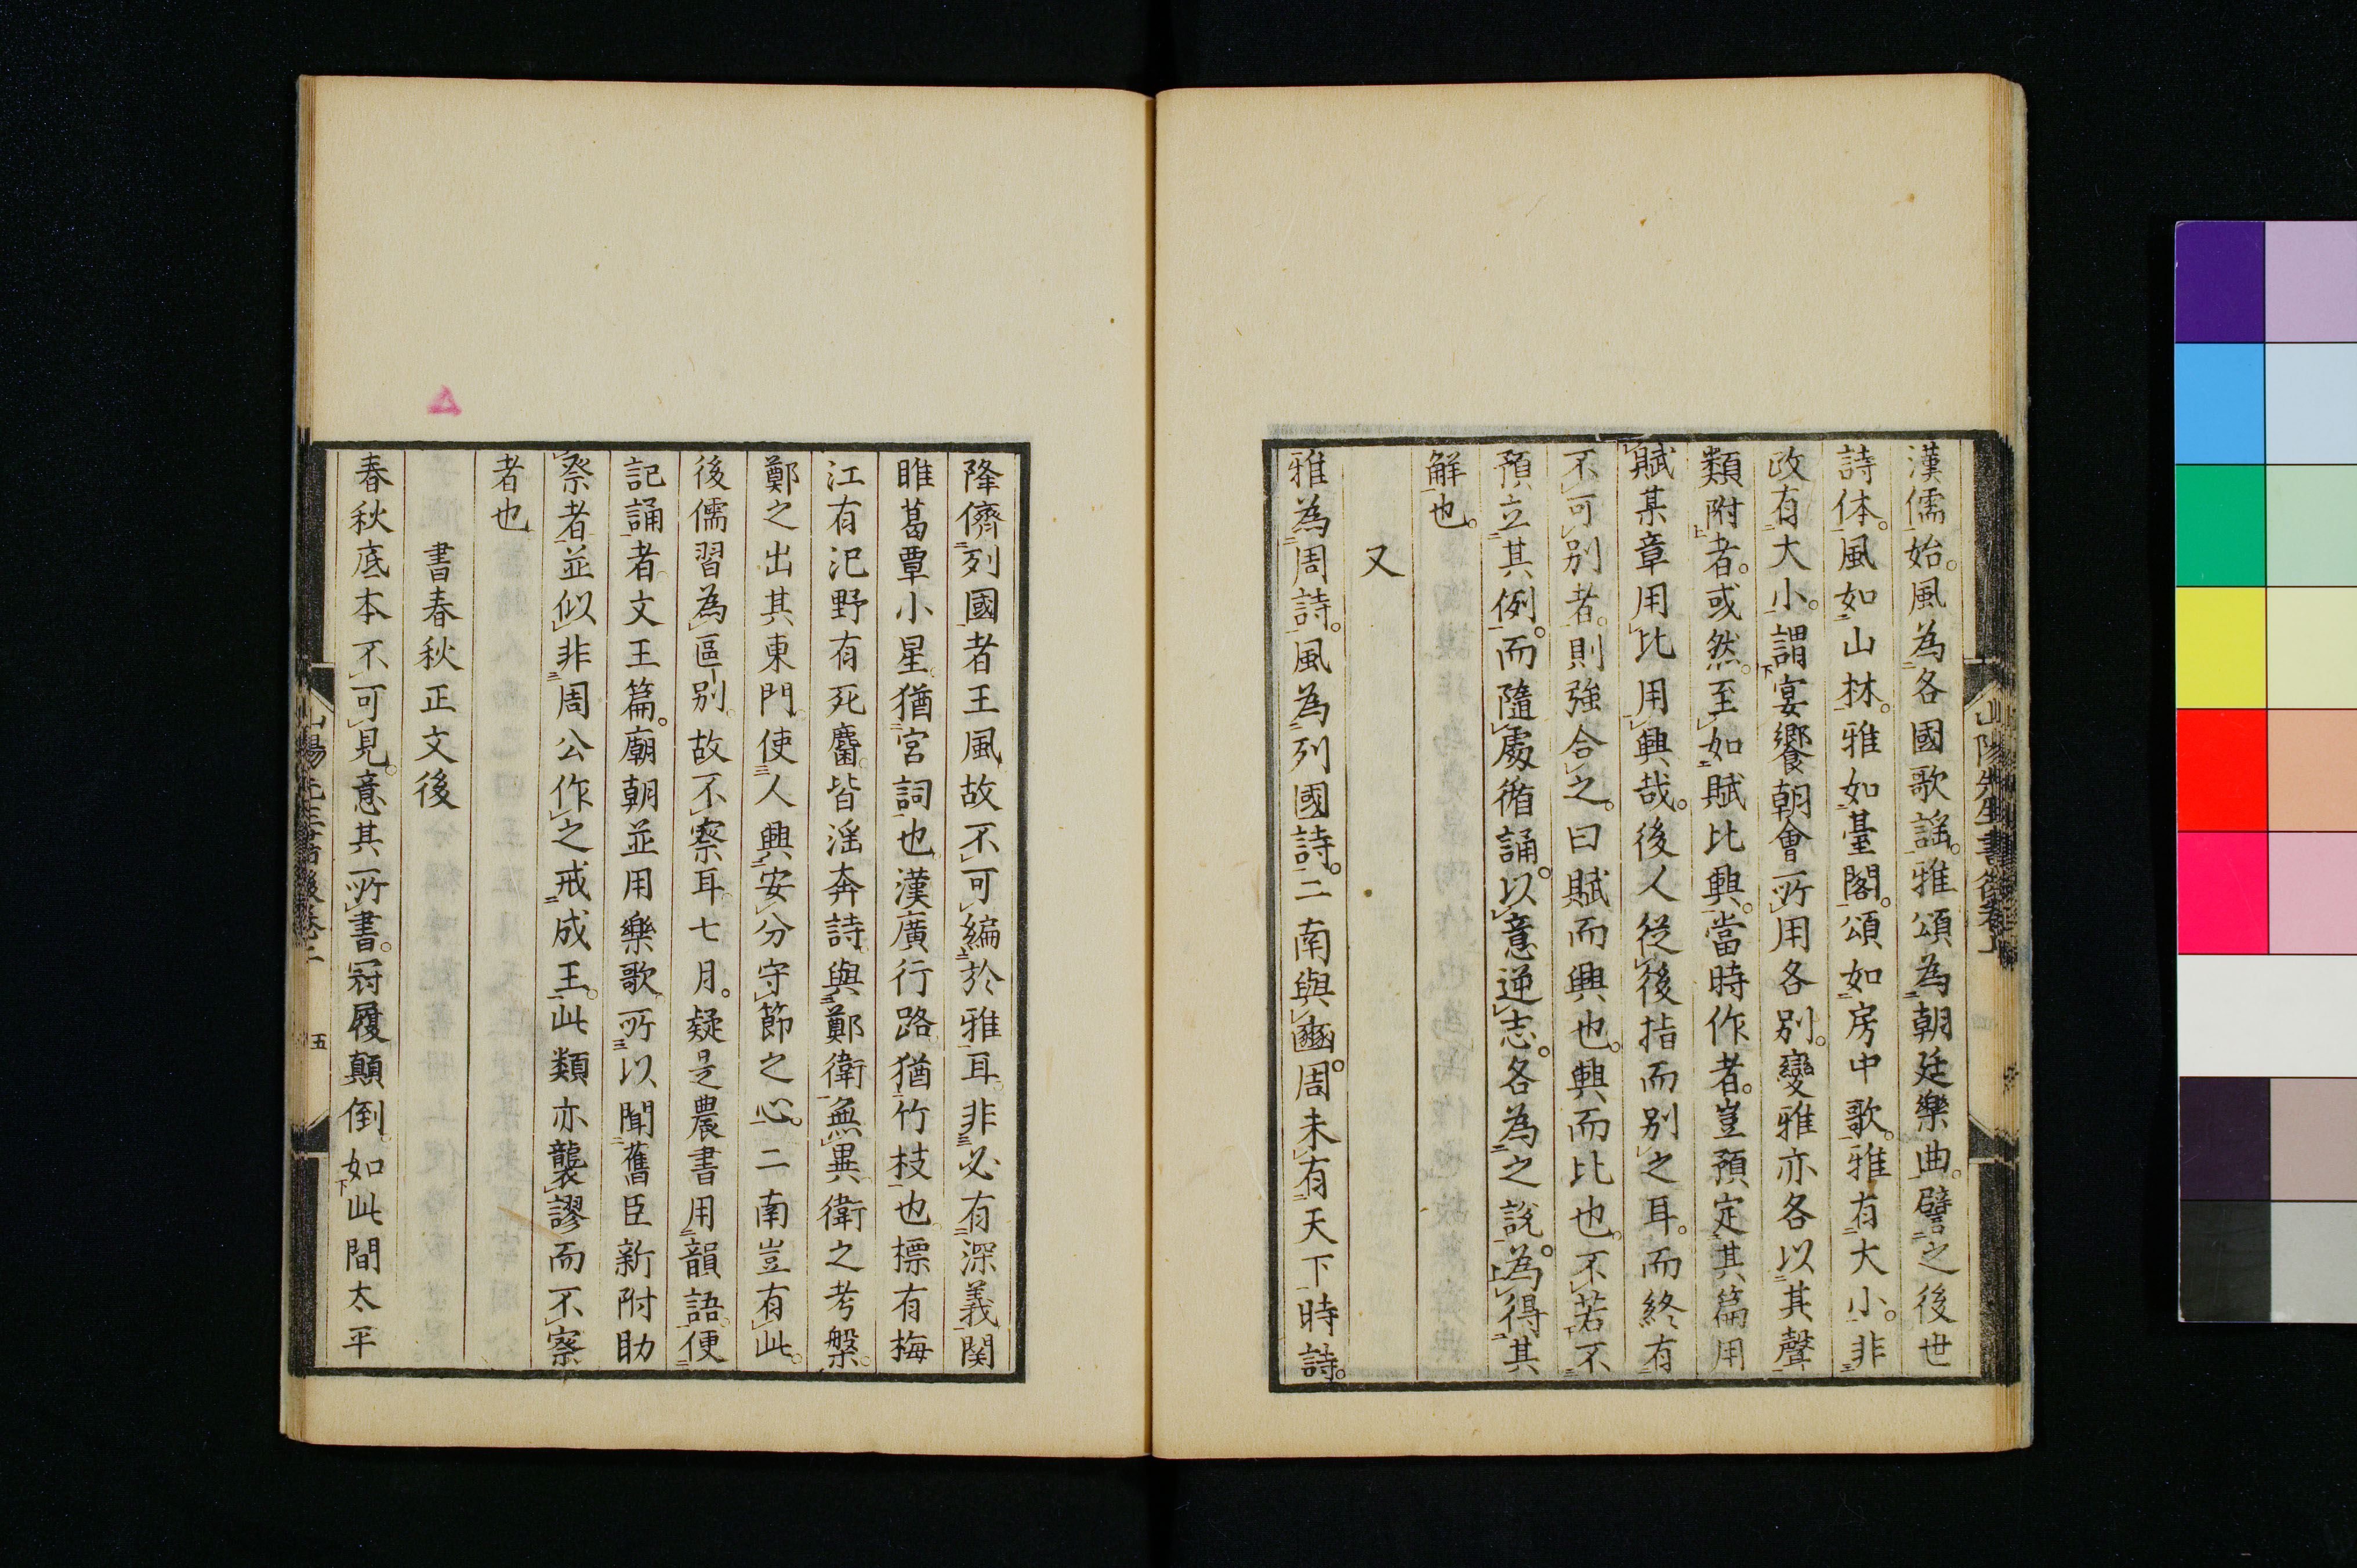 漢儒始。風為各國歌謡。雅頌為朝廷樂曲。譬之後世
詩体。風如山林。雅如臺閣。頌如房中歌。雅有大小。非
政有大小。謂宴饗朝會所用各別。變雅亦各以其聲
類附者。或然。至如賦比興。當時作者。豈預定其篇用
賦某章用比用興哉。後人従後指而別之耳。而終有
不可別者。則強合之。曰賦而興也。興而比也。不若不
預立其例。而隨處循誦。以意逆志。各為之説。為得其
解也。
又
雅為周詩。風為列國詩。二南與豳。周未有天下時詩。
降儕列國者王風故不可編於雅耳。非必有深義関
睢葛覃小星。猶宮詞也。漢廣行路猶竹枝也。摽有梅
江有汜野有死麕。皆淫奔詩與鄭衛無異。衛之考槃。
鄭之出其東門。使人興安分守節之心。二南豈有此。
後儒習為區別。故不察耳。七月。疑是農書用韻語。便
記誦者。文王篇。廟朝並用樂歌所以聞舊臣新附助
祭者。並似非周公作之戒成王。此類亦襲謬而不察
者也
書春秋正文後
春秋底本不可見。意其所書。冠履顛倒。如此間太平
山陽先生書後卷上
五